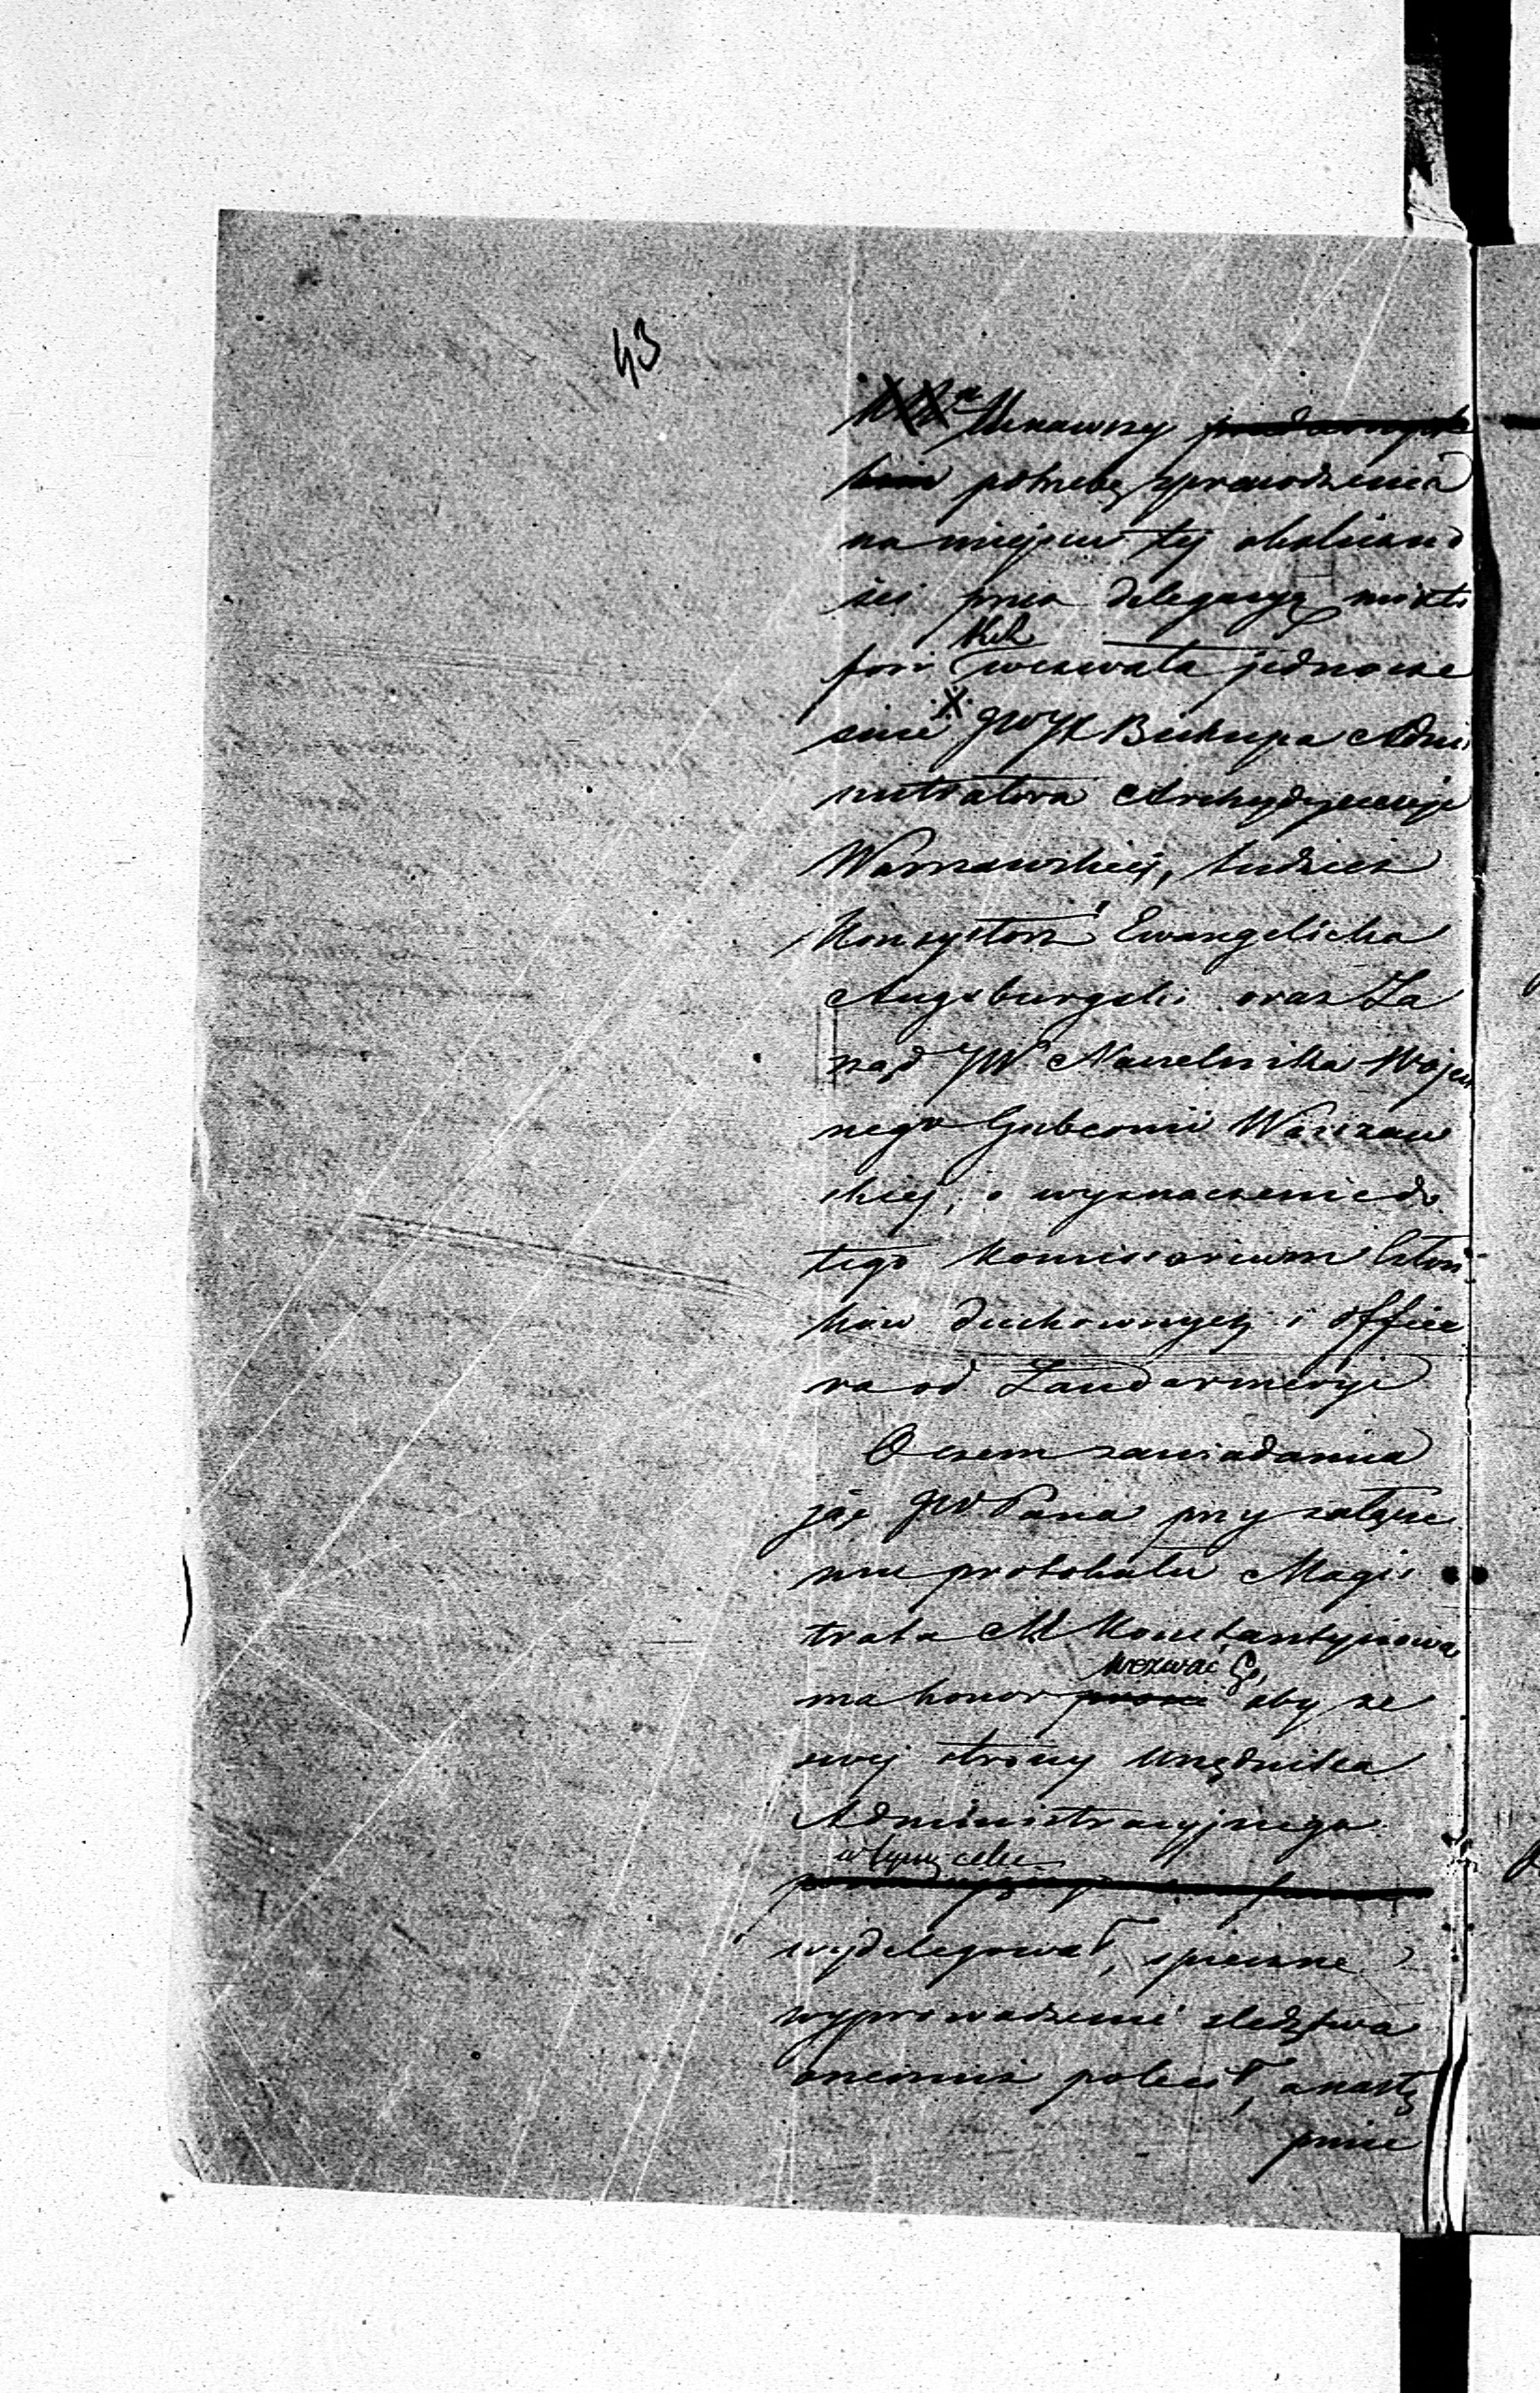 43
Uznawszy
potrzebę sprawdzenia
na miejscu tej okoliczno
ści przez delegacyą mixti
fori KRz wezwała jednocze
śnie X JWJX Biskupa Admi
nistratora Archydyecezyi
Warszawskiej, tudzież
Konsystorz Ewangelicko
Augsburgski oraz Za
rząd JWo Naczelnika Wojen
nego Gubernii Warszaw
skiej, o wyznaczenie do
tego kommissarium Człon
ków duchownych i office
ra od Żandarmeryi
O czem zawiadamia
jąc JWPana przy załącze
niu protokułu Magis
tratu M. Konstantynowa
ma honor wezwać Go, aby ze
swej strony Urzędnika
Administracyjnego
w tym celu
wydelegował, spieszne
wyprowadzenie śledztwa
onemuż polecił, a nastę
pnie